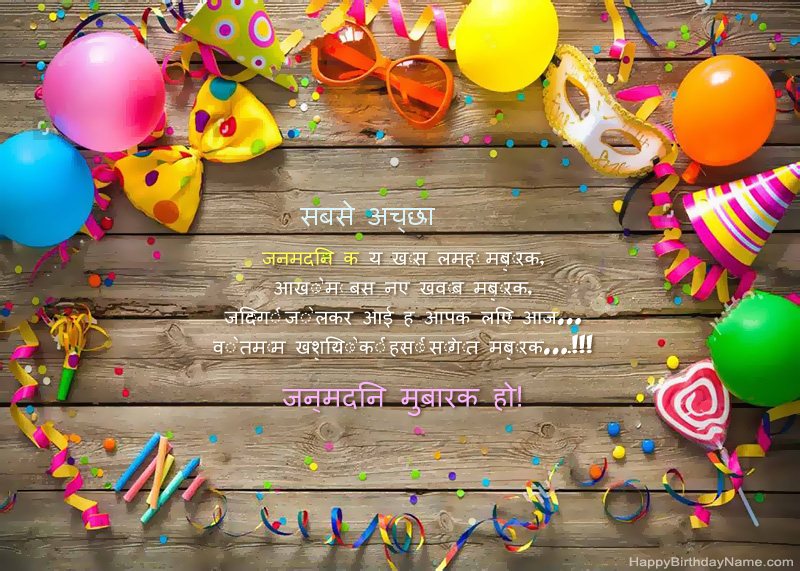 सबसे अच्छा
जनमदनि क य खास लमहा मबारक,
आखो मा बस नए खवाब मबारक,
जदिगी जो लेकर आई ह आपक लएि आज...
वो तमाम खशयिो की हसी सागात मबारक...!!!
जन्मदनि मुबारक हो!
HappyBirthdayName.com